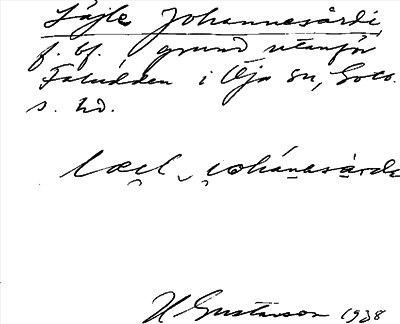 Säjle Johannesårdi
f. bf. grund utanför
Faludden i Öja sn, Gotl.
s. hd.
H Gustavson 1938